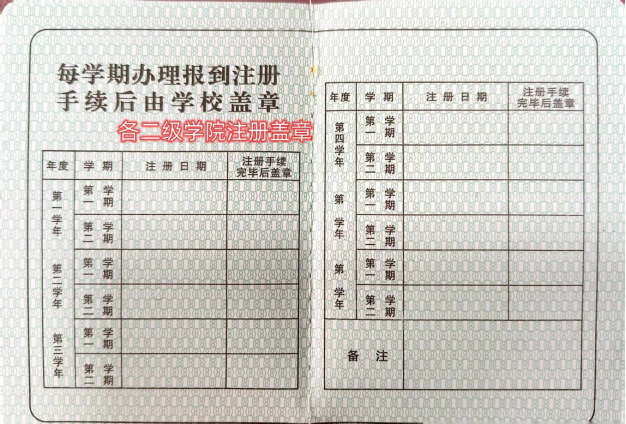 每学期办理报到注册
手续后由学校盖章
各二级学院注册盖章
年度 学期 注册日期 注册手续完毕后盖章
第一学年 第一学期
第二学期
第二学年 第一学期
第二学期
第三学年 第一学期
第二学期
年度 学期 注册日期 注册手续完毕后盖章
第四学年 第一学期
第二学期
第 学年 第一学期
第二学期
第 学年 第一学期
第二学期
备注